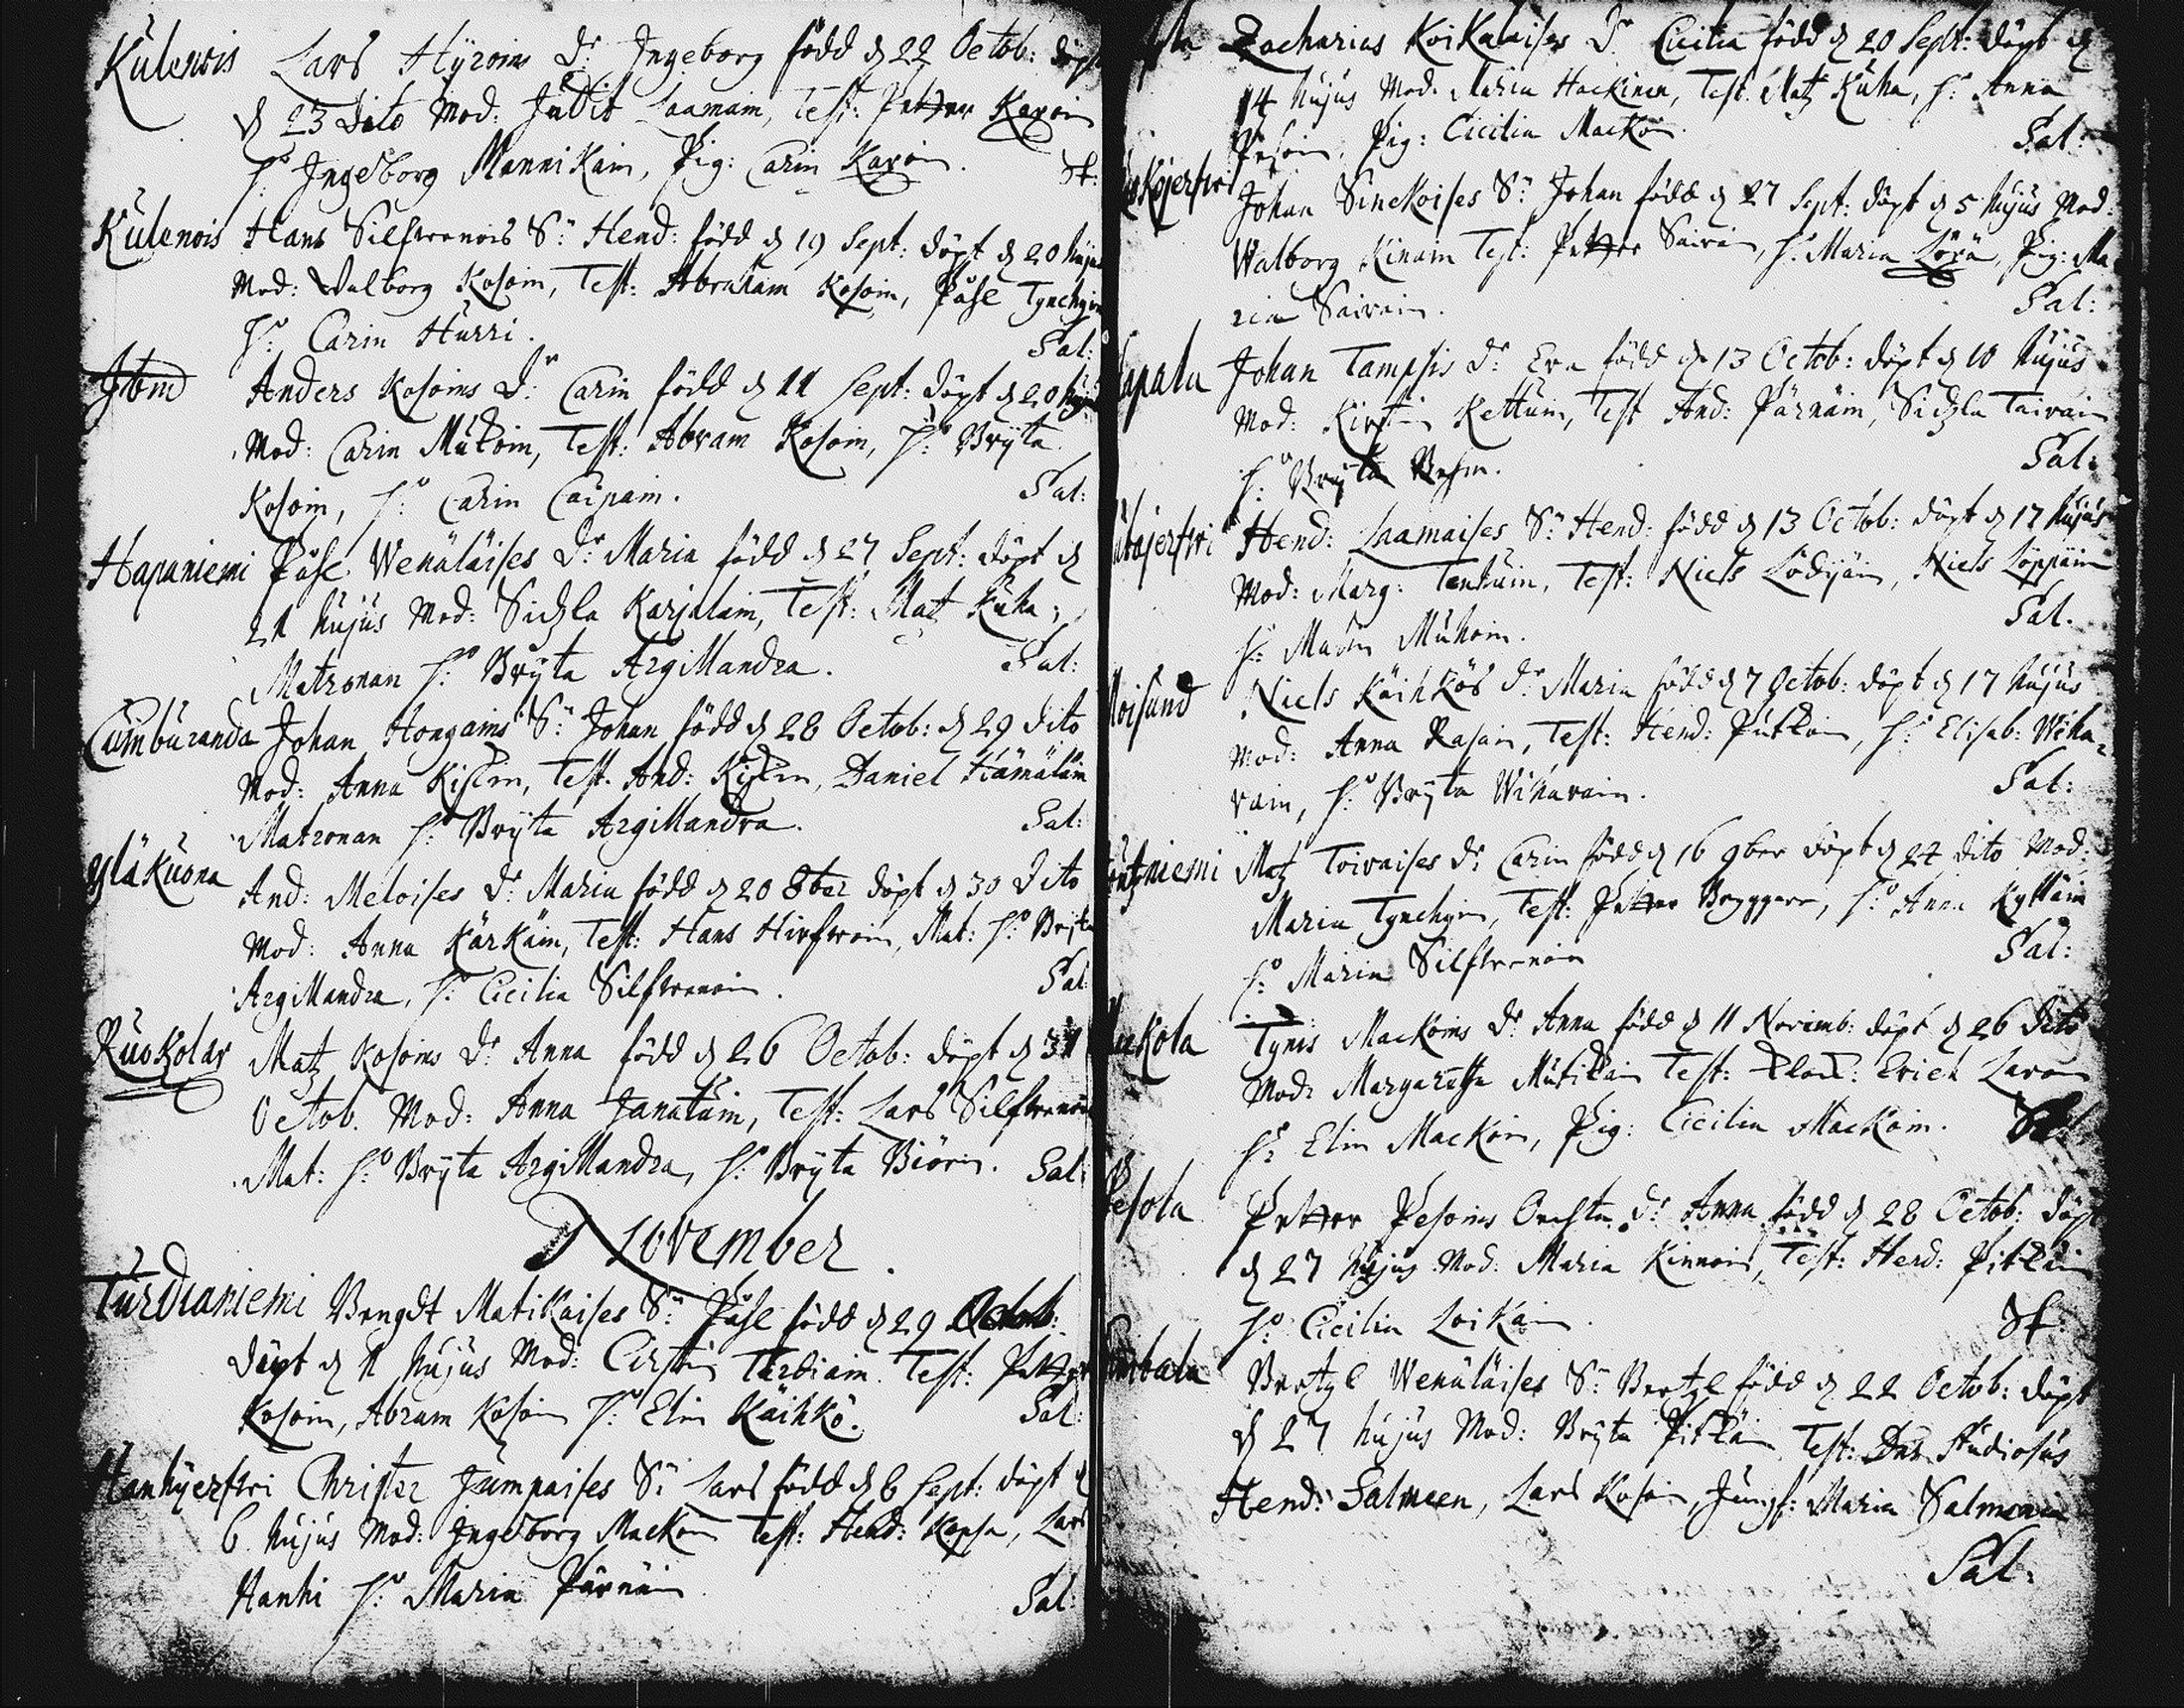 Kulenois Lars Hyroins Dr Ingeborg född d 22 Octob: döpt
d 23 Dito Mod: Judit Laamain, Test: Petter Karoin
H: Ingeborg Mannikain, Pig: Carin Karoin. St:
Kulenois Hans Silfwenois Sn Hend: född d 19 Sept: döpt d 20 hujus
Mod: Walborg Kosoin, Test: Abraham Kosoin, Påfle Tynchyin
H: Carin Hurri. Sal:
Item Anders Kosoins Dr Carin född d 11 Sept: döpt d 20 hujus
Mod: Carin Mutoin, Test: Abram Kosoin, H: Bryta
Kosoin, H: Carin Caipain. Sal:
Hapaniemi Påfle Wenäläises Dr Maria född d 27 Sept: döpt d
21 hujus Mod: Sidzla Karjalain, Test: Matz Kuha,
Matronan H: Bryta Argillandra. Sal:
Cumburanda Johan Hongains Sn Johan född d 28 Octob: d 29 dito
Mod: Anna Kislin, Test. And: Kislin, Daniel Hämäläin
Matronan H: Bryta Argillandra. Sal:
Yläkuona And: Meloises Dr Maria född d 20 8ber döpt d 30 dito
Mod: Anna Kärkäin, Test: Hans Hirfwoin, Mat: H: Bryta
Argillandra, H: Cicilia Silfwenoin. Sal:
Ruokolax Matz Kosoins Dr Anna född d 26 Octob: döpt d 31
Octob. Mod: Anna Janatuin, Test: Lars Silfwenoin
Mat: H: Bryta Argillandra, H: Bryta Biörn. Sal:
November.
Turdianiemi Bengdt Matikaises Sn Påfle född d 29 Octob:
döpt d 1 hujus Mod: Cirstin Turdiain. Test: Petter
Kosoin, Abram Kosoin H: Elin Käihkö. Sal:
Hanhijerfwi Christer Jumpaises Sn Lars född d 6 Sept: döpt d
6 hujus Mod: Ingeborg Mackoin Test: Hend: Kopsa, Lars
Hanhi H: Maria Pärnäin Sal:
Zacharias Koikalaises Dr Cicilia född d 20 Sept: döpt d
14 hujus Mod: Maria Hackinen, Test. Matz Kuha, H: Anna
Pesoin, Pig: Cicilia Mackoin. Sal:
Johan Sinckoises Sn Johan född d 27 Sept: döpt d 5 hujus Mod:
Walborg Kinain Test: Petter Sairain, H: Maria Löra, Pig: Ma
ria Sairain. Sal:
Johan Tampsis Dr Eva född d 13 Octob: döpt d 10 hujus
Mod: Kirstin Kettuin, Test And: Pärnäin, Sidzla Tairain
H: Bryta Behm. Sal:
Hend: Lhamaises Sn Hend: född d 13 Octob: döpt d 17 hujus
Mod: Marg: Tenhuin, Test: Niels Lödyäin, Niels Löppäin
H: Muhoin. Sal.
Moisund Niels Käihkös Dr Maria född d 7 Octob: döpt d 17 hujus
Mod: Anna Rasain, Test: Hend: Putkoin, H: Elisab: Wiha
vain, H: Bryta Wihavain. Sal:
Matz Toivaises Dr Carin född d 16 9ber döpt d 24 dito Mod:
Maria Tynchyin, Test: Petter Bryggare, H: Anna Kyttäin
H: Maria Silfwenoin Sal:
Tynis Mackoins Dr Anna född d 11 Novemb: döpt d 26 dito
Mod: Margaretha Mutikain Test: Erich Lavoin
H: Elin Mackoin, Pig: Cicilia Mackoin. Sal:
Pesola Petter Pesoins Dr Anna född d 28 Octob: döpt
d 27 hujus Mod: Maria Kinnoin, Test: Hend: Pitkäin
H: Cicilia Loikain. St:
Bertzl Wenäläises Sn Bertzl född d 22 Octob: döpt
d 27 hujus Mod: Bryta Pitkäin Test: Dns Studiosus
Hend: Salmeen, Lars Kosoin, Jungf: Maria Salmenia
Sal: